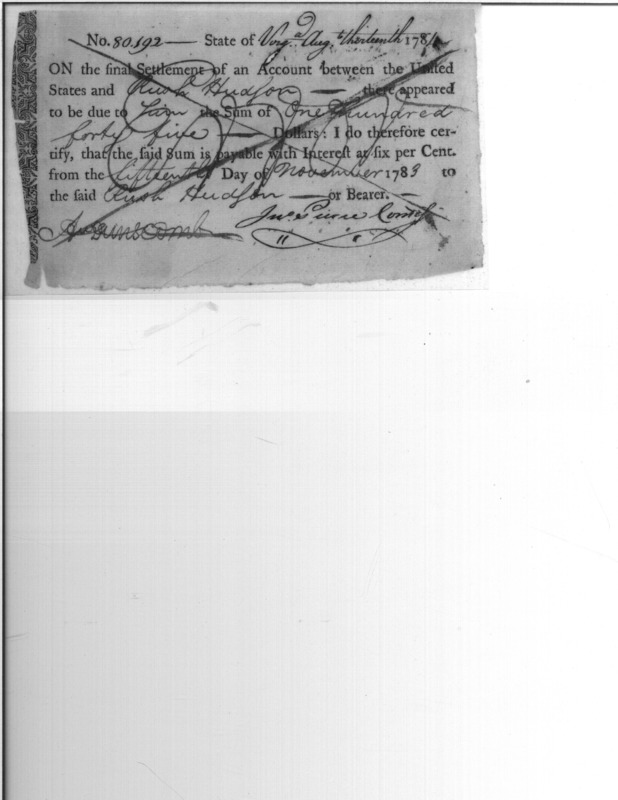 No. 80.192 — State of Virg.a Aug.t thirteenth 178
ON the final Settlement of an Account between the United
States and Rush Hudson — there appeared
to be due to him the Sum of One Hundred
forty five — Dollars: I do therefore cer-
tify, that the said Sum is payable with Interest at six per Cent.
from the fifteenth Day of November 1783 to
the said Rush Hudson — or Bearer. —
Jn.o Pierce Commis.r
A. Dunscomb